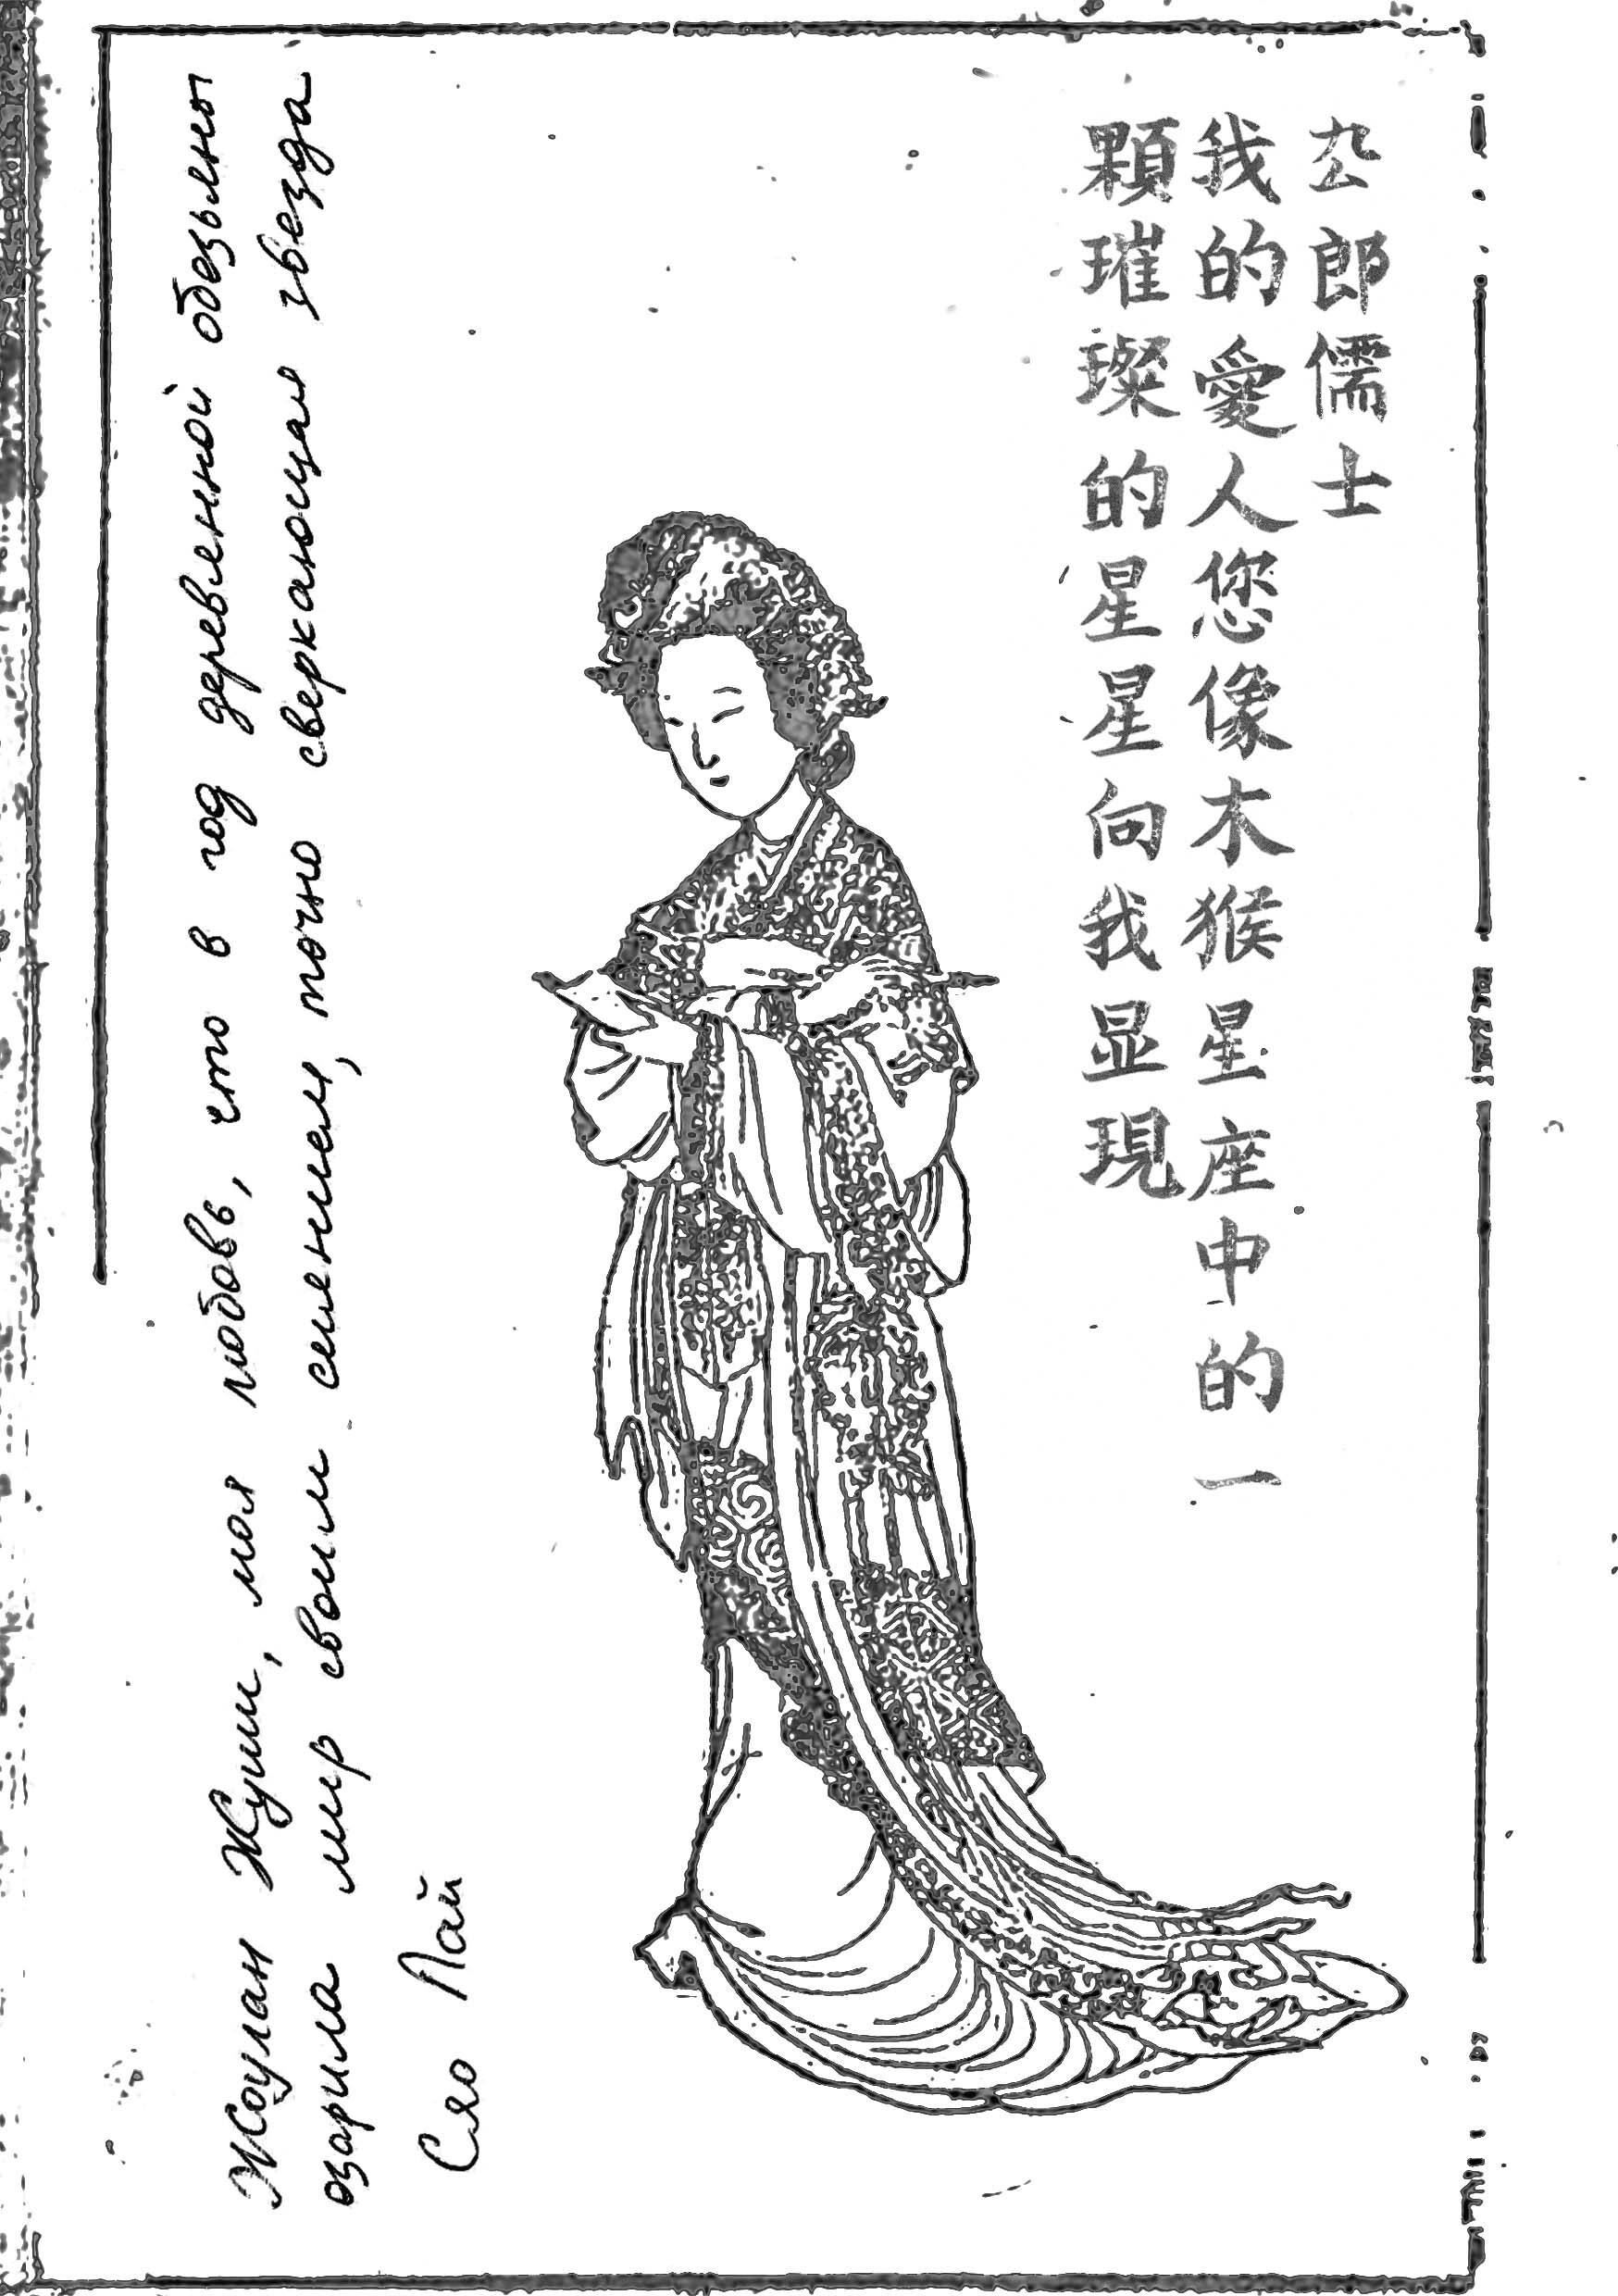 厹郎儒士
我的愛人您像木猴星座中的一
顆璀璨的星星向我显現
Жоулан Жуши, моя любовь, что в год деревянной обезьяны
озарила мир своим сиянием, точно сверкающая звезда
Сяо Лай